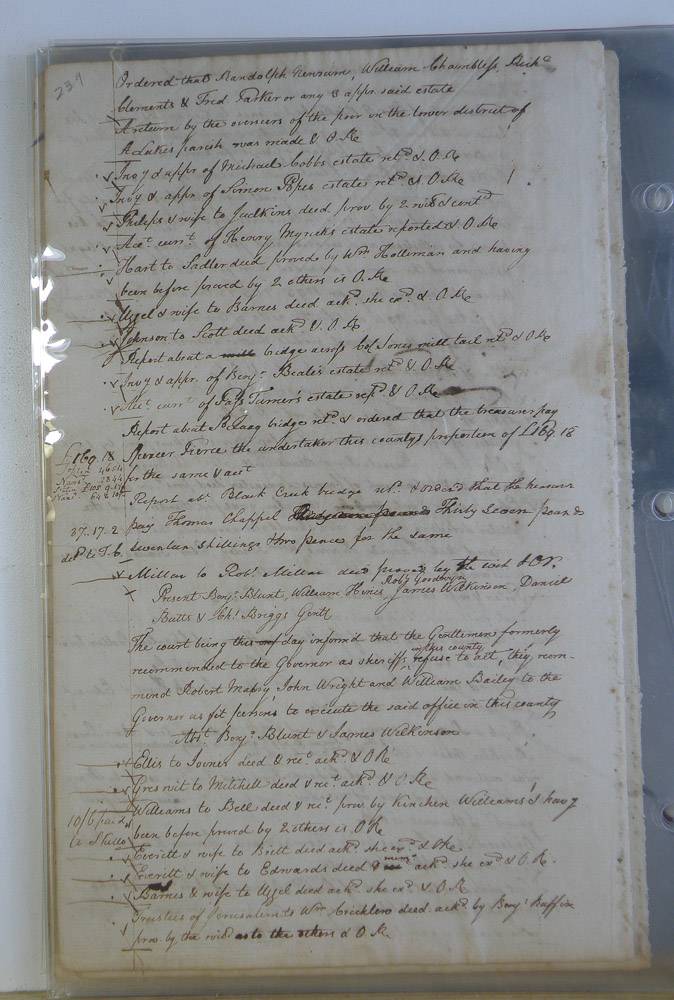 239
Ordered that Randolph Newsum, William Chambless, Rich.d
Clements & Fred Parker or any 3 appr. said estate
A return by the overseers of the poor in the lower district of
St Lukes parish was made & O.R.
Inv.y & appr. of Michael Cobbs estate ret.d & O.R.
Inv.y & appr. of Simon Popes estate ret.d & O.R.
Philips & wife to Judkins deed prov. by 2 &
Acc.t curr.t of Henry Myricks estate reported & O.R.
Hart to Sadler deed proved by Wm Holleman and having
been before proved by 2 others is O.R.
Uzzel & wife to Barnes deed ack.d she ex.d & O.R.
Johnson to Scott deed ack.d & O.R.
Report about a mill bridge across Col Jones mill tail ret.d & O.R.
Inv.y & appr. of Benj.n Beale's estate ret.d & O.R.
Acc.t curr.t of Turner's estate ret.d & O.R.
Report about bridge ret.d & ordered that the treasurer pay
£169.18 Spencer Pierce the undertaker this county's proportion of £169.18
for the same & acct
Report ab.t Black Creek bridge ret.d & ordered that the treasurer
37.17.2 pay Thomas Chappel Thirty seven pounds
seventeen shillings & two pence for the same
Millar to Rob.t Millar deed proved by the wit & O.R.
Rob.t Goodwyn
Present Benj.n Blunt, William Hines, James Wilkinson, Daniel
Butts & Ch.s Briggs Gentl
The court being this day informed that the Gentlemen formerly
in this county
recommended to the Governor as sheriffs, refuse to act, they recom-
mend Robert Mabry, John Wright and William Bailey to the
Governor as fit persons to execute the said office in this county
Abs.t Benj.n Blunt & James Wilkinson
Ellis to Joiner deed & rec.t ack.d & O R
to Mitchell deed & rec.t ack.d & O.R.
Williams to Bell deed & rec.t prov. by Kinchen Williams & hav.g
10/6 paid
been before proved by 2 others is O R
Everitt & wife to Britt deed ack.d she ex.d & O R
Everitt & wife to Edwards deed & mem.o ack.d she ex.d & O.R.
Barnes & wife to Uzzel deed ack.d she ex.d & O.R.
Trustees of Jerusalem to Wm Crichlow deed ack.d by Benj.n Ruffin
prov. by the wit.s as to the others & O.R.